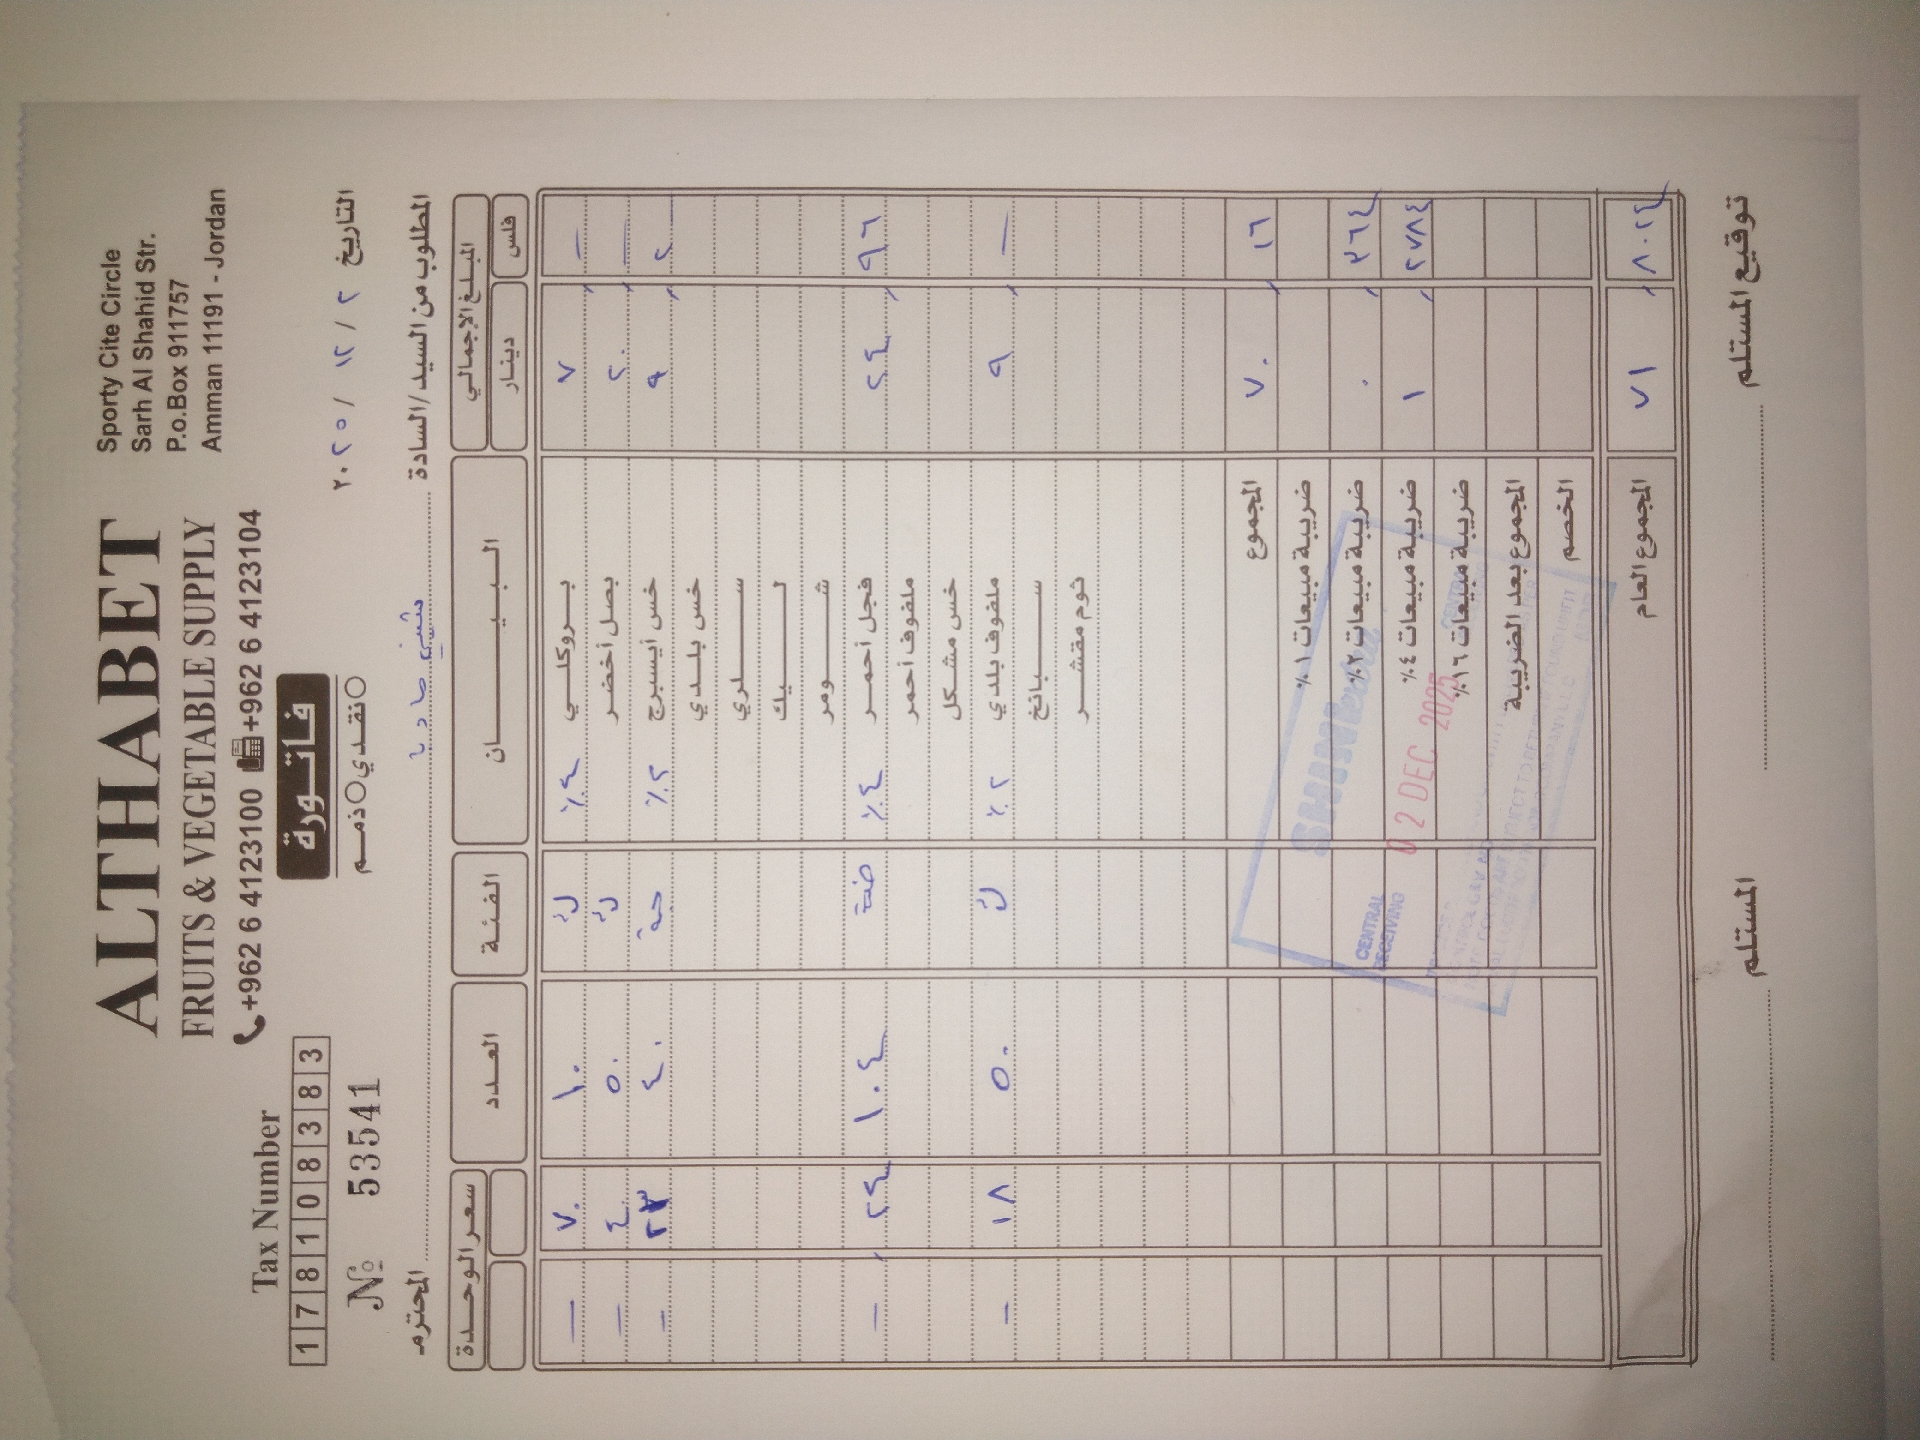 ALTHABET
FRUITS & VEGETABLE SUPPLY
+962 6 4123100 +962 6 4123104
Sporty Cite Circle
Sarh Al Shahid Str.
P.o.Box 911757
Amman 11191 - Jordan
Tax Number
1 7 8 1 0 8 3 8 3
№ 53541
فاتورة
نقدي ذمم
التاريخ ٢ / ١٢ / ٢٠٢٥
المطلوب من السيد/السادة المحترم
المبلغ الإجمالي البيان الفئة العدد سعر الوحدة
دينار فلس
٧ — بروكلي ٤٪ ك ١٠ ٧٠ —
٢٠ — بصل أخضر ك ٥٠ ٤ —
٩ ٢ خس أيسبرج ٢٪ حبة ٤٠ ٢٣ —
خس بلدي
سلري
ليك
شومر
٢٤ ٩٦ فجل أحمر ٤٪ ضمة ١٠٤ ٢٤ —
ملفوف أحمر
خس مشكل
٩ — ملفوف بلدي ٢٪ ك ٥٠ ١٨ —
سبانخ
ثوم مقشر
٧٠ ١٦ المجموع
ضريبة مبيعات ١٪
٠ ٣٦٤ ضريبة مبيعات ٢٪
١ ٢٧٨٤ ضريبة مبيعات ٤٪
ضريبة مبيعات ١٦٪
المجموع بعد الضريبة
الخصم
٧١ ٨٠٢٤ المجموع العام
CENTRAL
RECEIVING
0 2 DEC 2025
توقيع المستلم المستلم